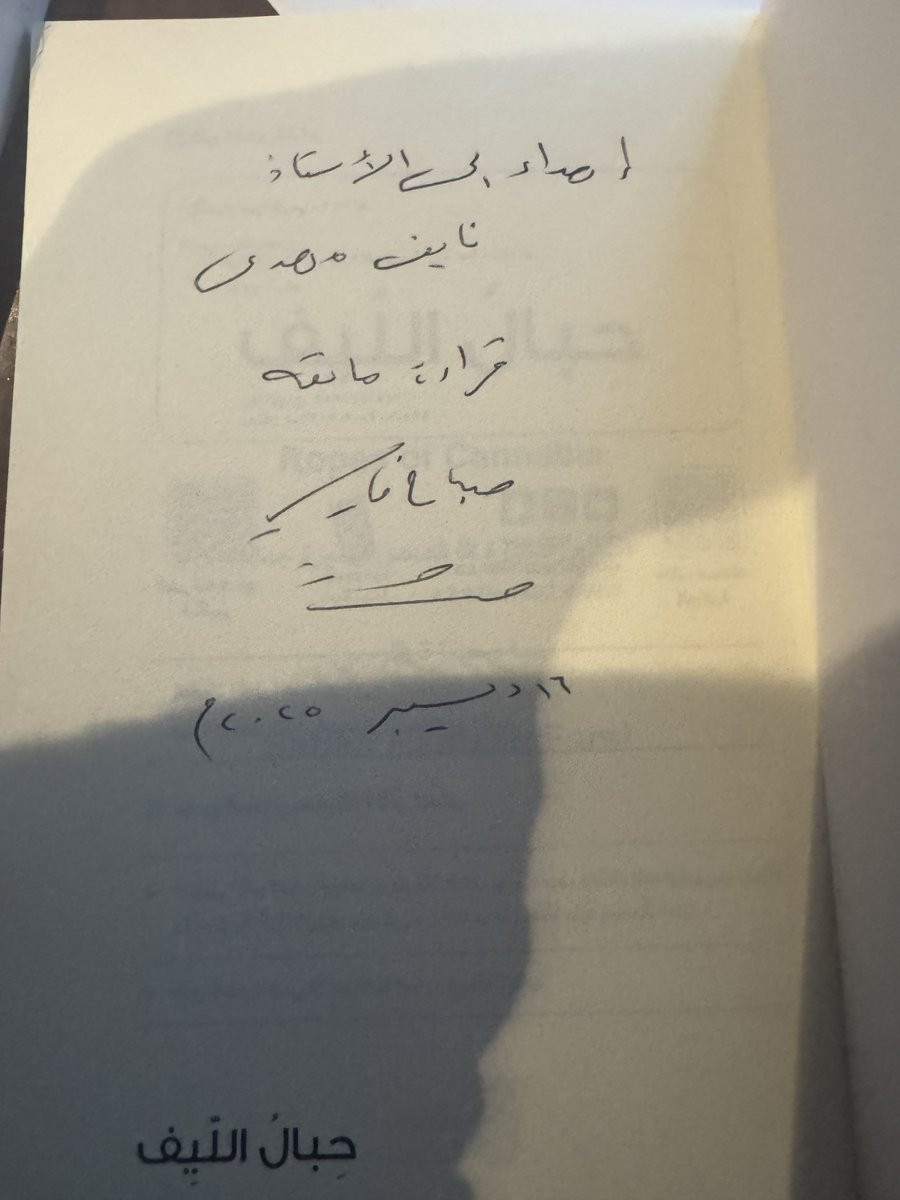 إهداء إلى الأستاذ
نايف مهدي
قراءة ماتعه
صباح فارسي
١٦ ديسمبر ٢٠٢٥م
حِبالُ اللّيِف